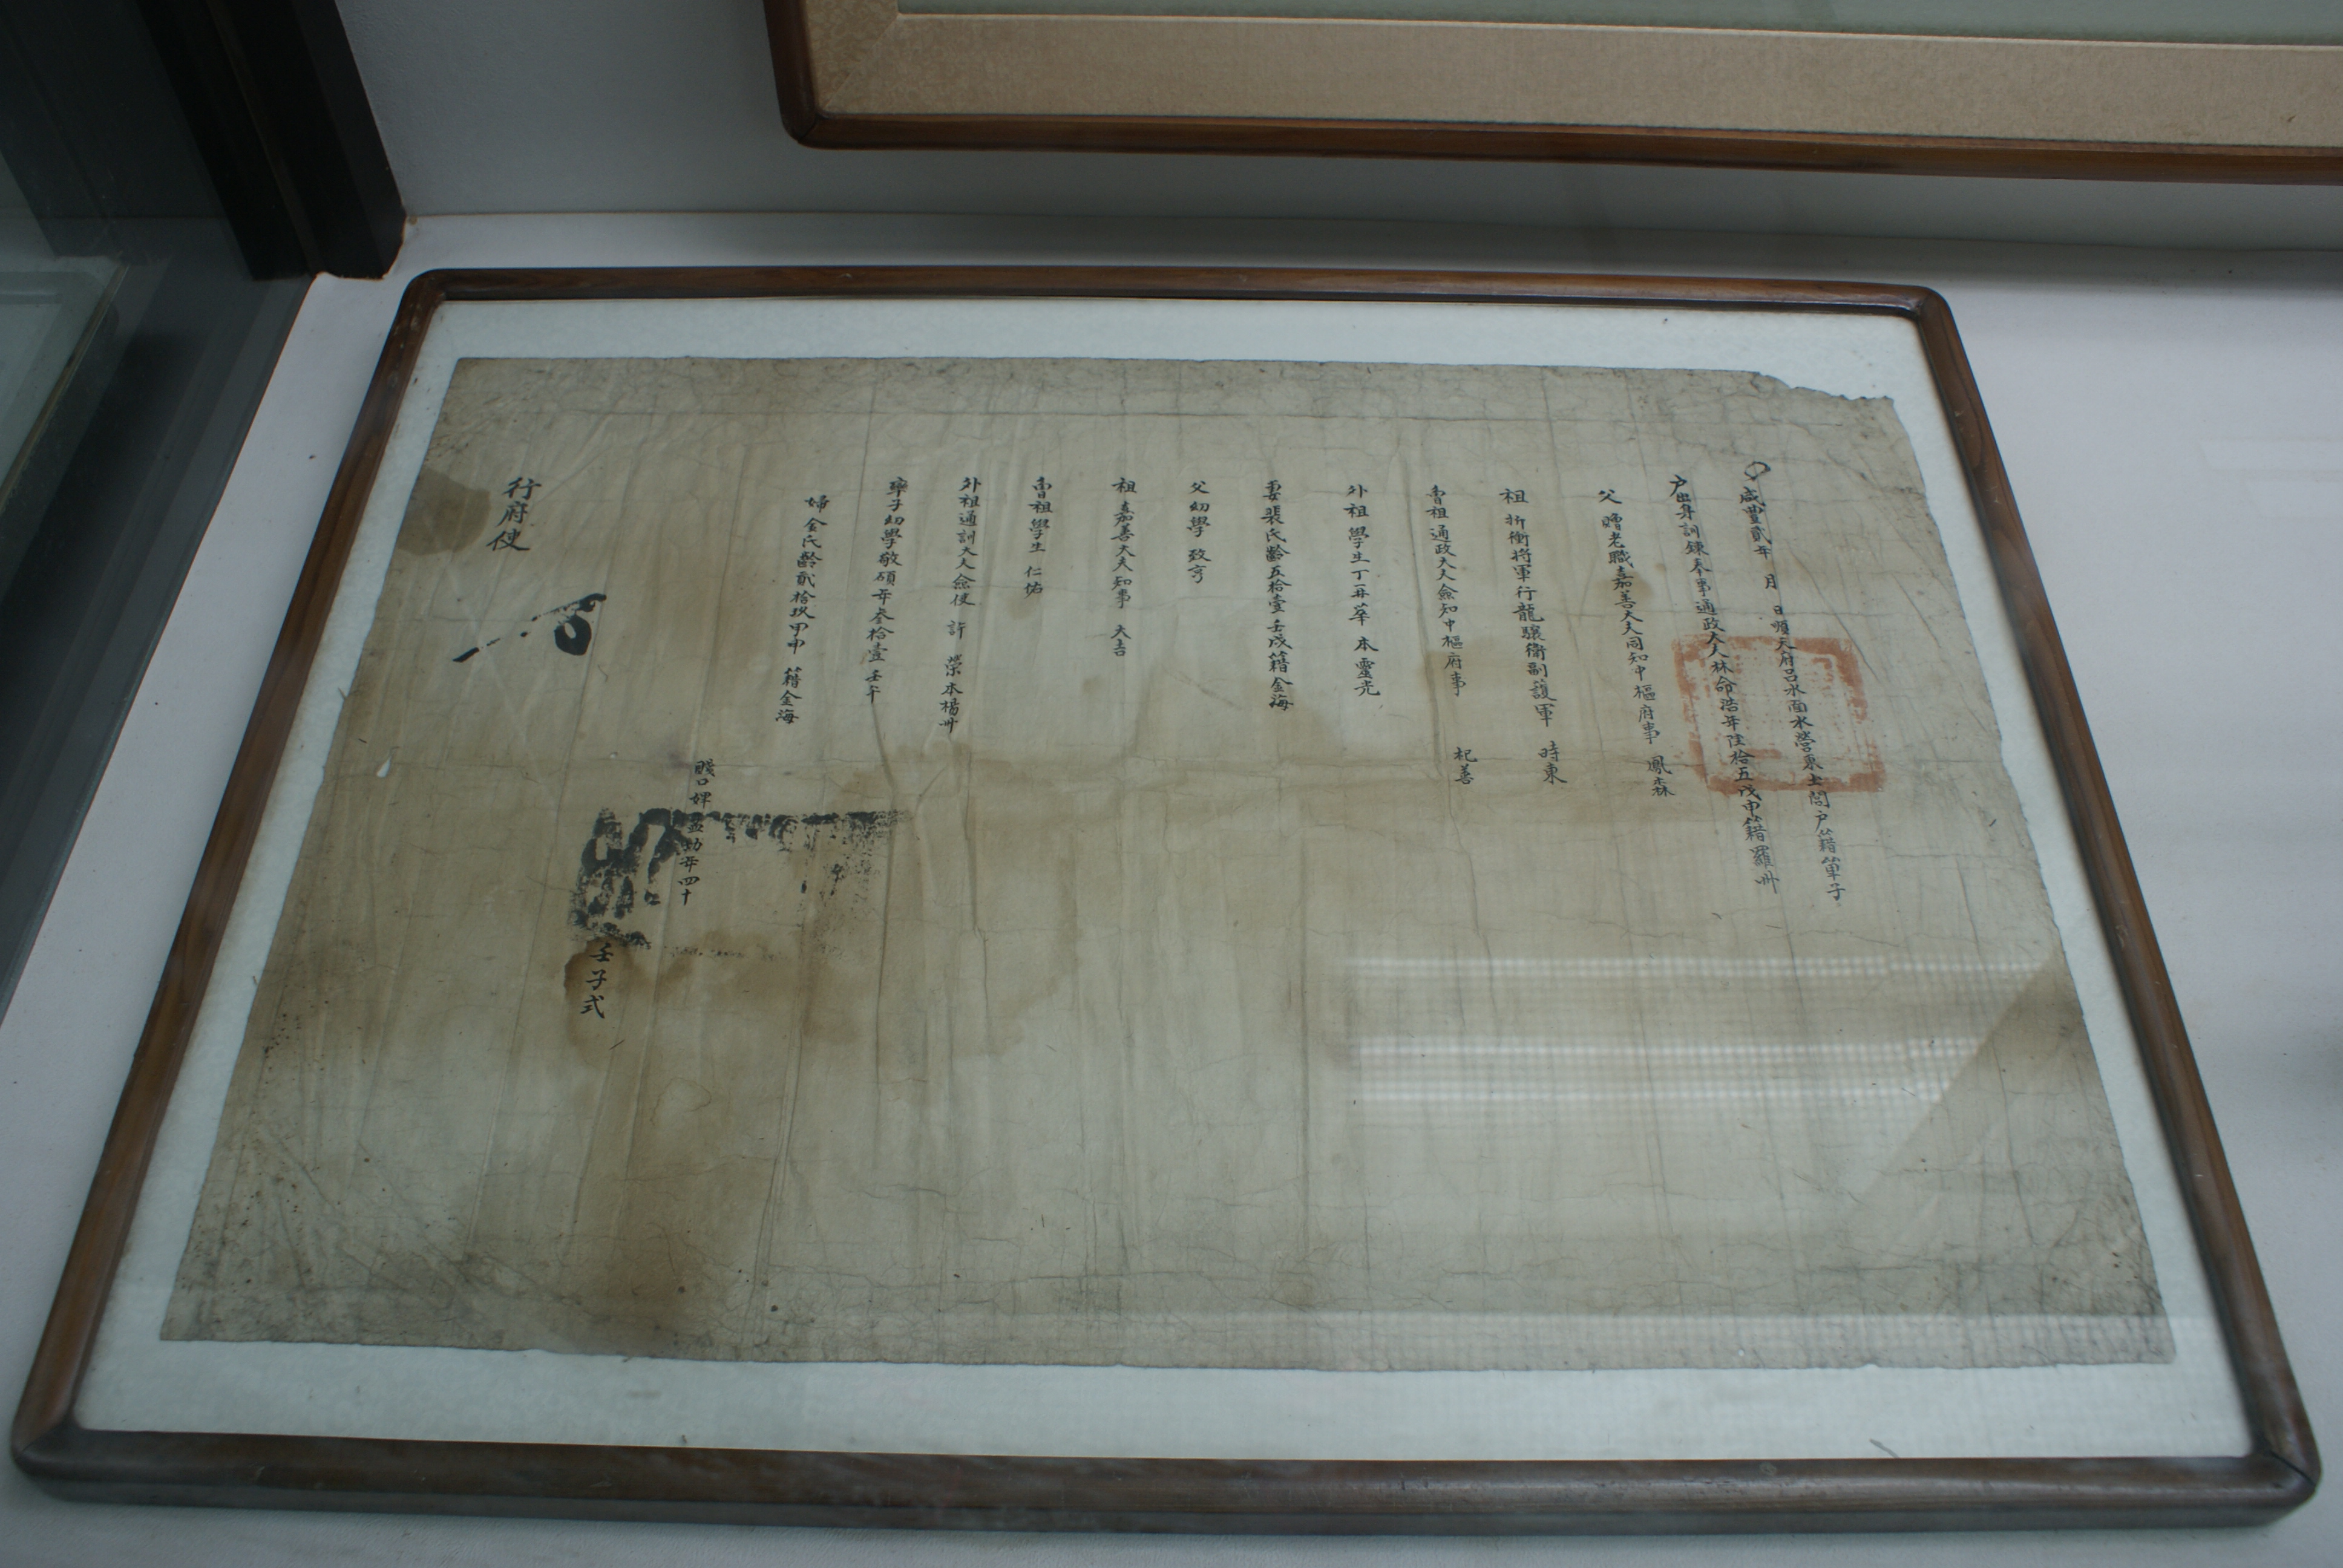 咸豊貳年 月 日順天府呂水面水營東士問戶籍單子
戶出身訓鍊奉事通政大夫林命浩年陸拾五戊申籍羅州
父 贈老職嘉善大夫同知中樞府事 鳳森
祖 折衝將軍行龍驤衛副護軍 時東
曾祖 通政大夫僉知中樞府事 杞善
外祖 學生丁 本靈光
妻裴氏齡五拾壹壬戌籍金海
父 幼學 致亨
祖 嘉善大夫知事 大吉
曾祖學生 仁佑
外祖通訓大夫僉使 許 榮本楊州
率子幼學敬碩年叁拾壹壬午
婦金氏齡貳拾玖甲申 籍金海
賤口婢 年四十
壬子式
行府使